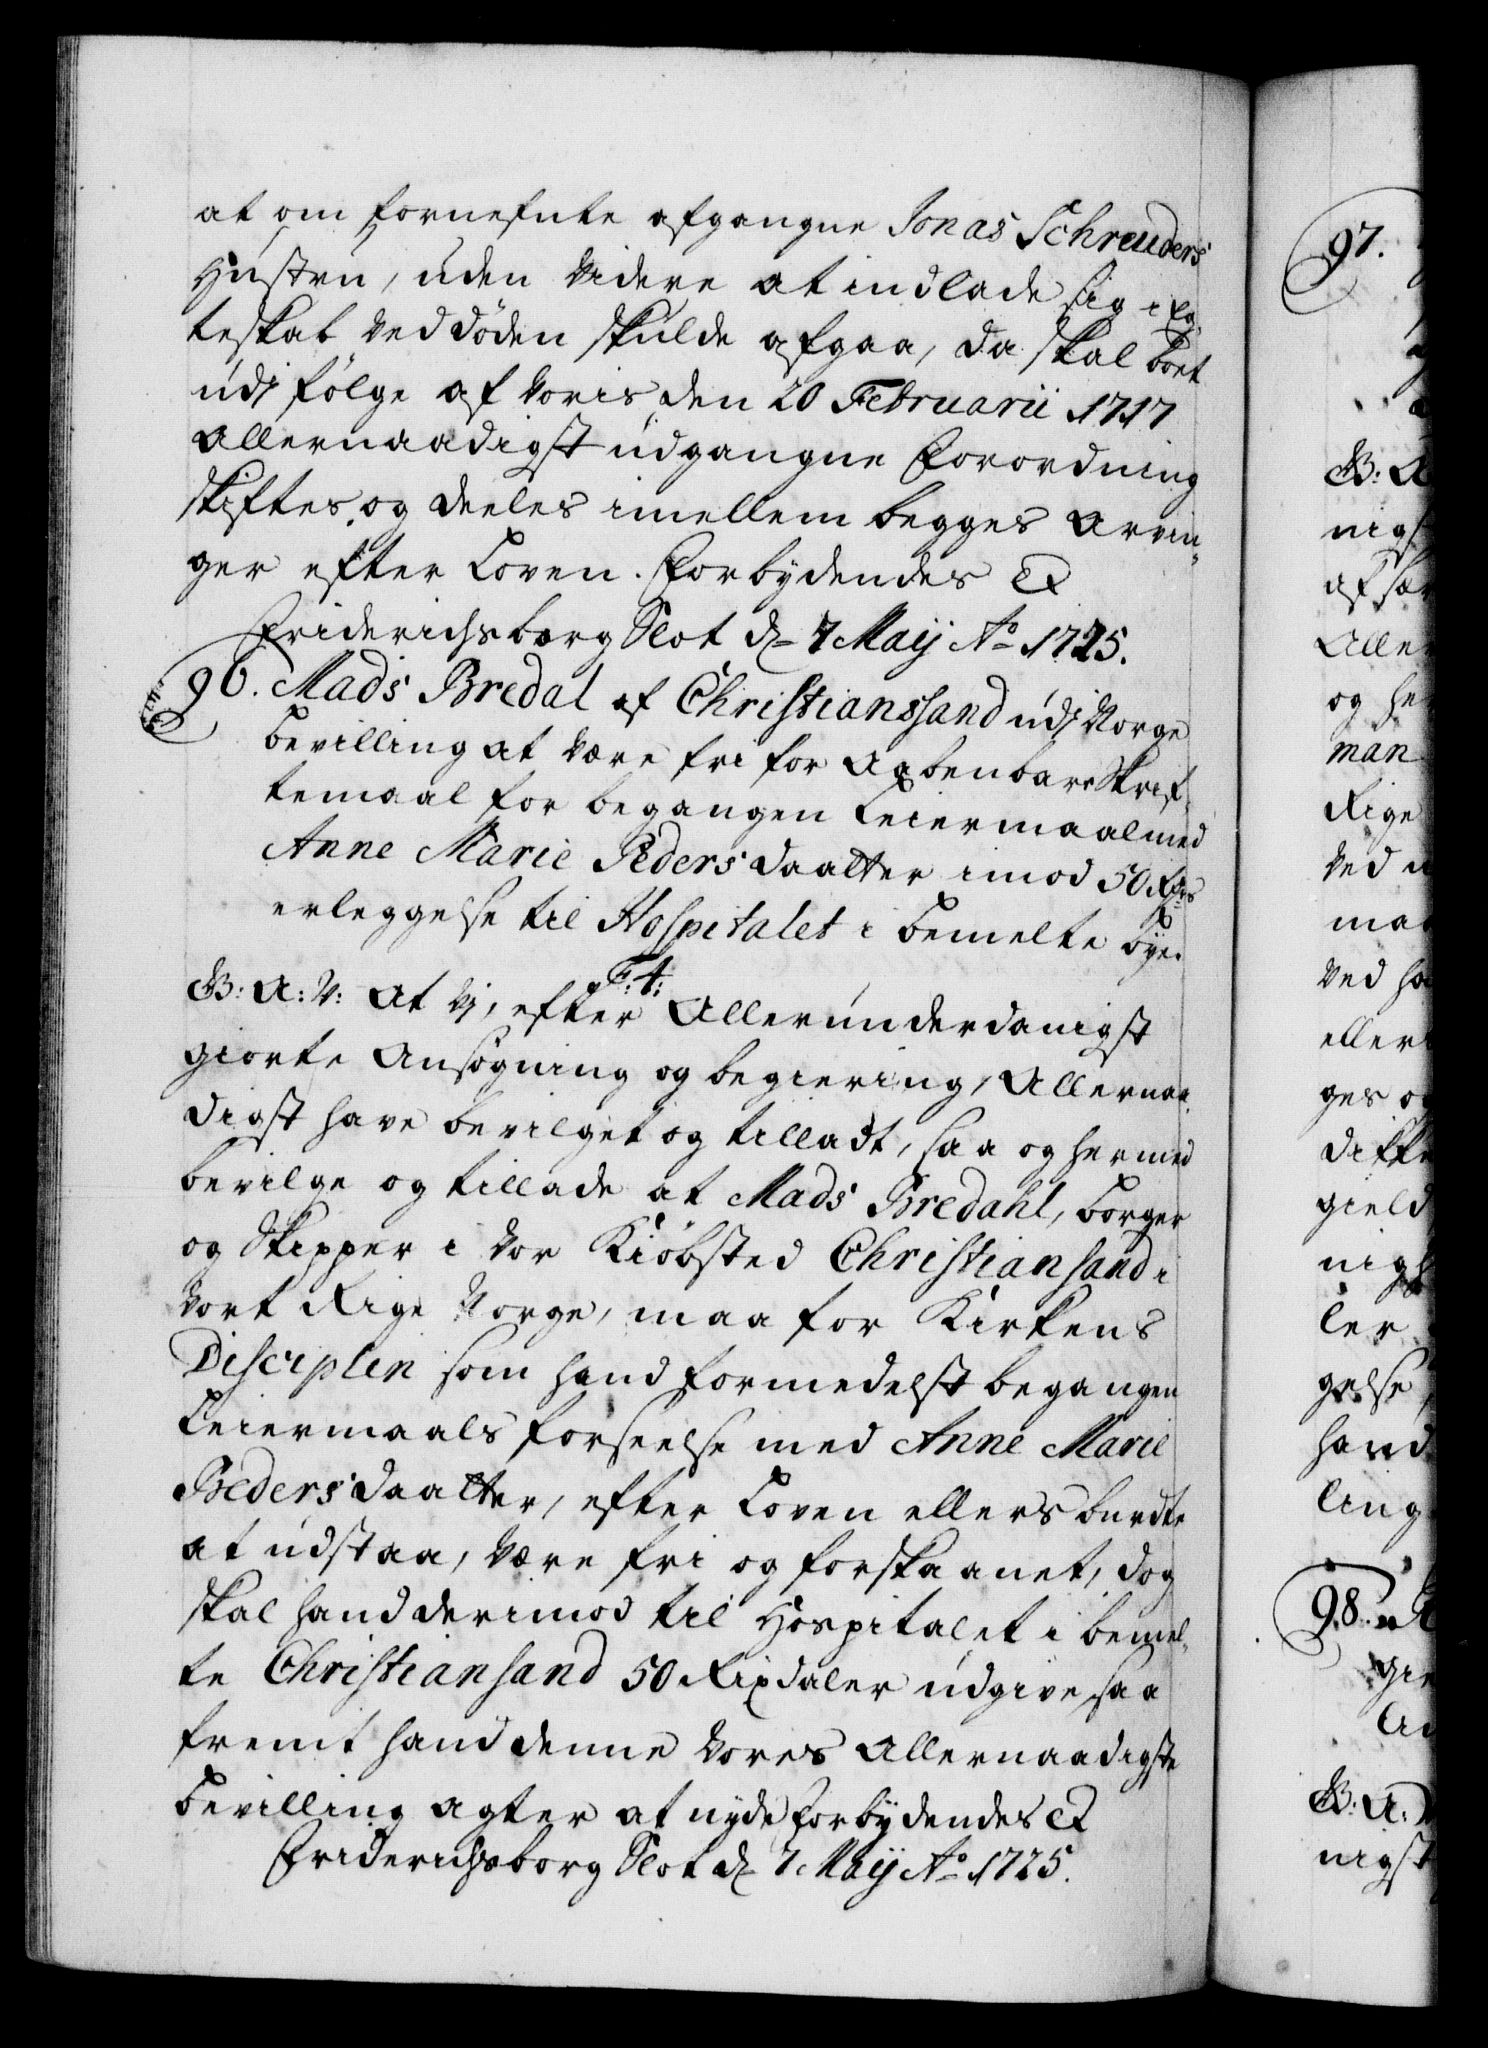 at om fornefnte afgangne Jonas Schreuders
Hustru, uden videre at indlade sig i Eg-
teskab ved døden skulde afgaa, da skal boet
udj følge af voris den 20 Februarii 1717
allernaadigst udgangne Forordning
skiftes og deeles imellem begges Arvin„
ger efter Loven. Forbydendes &
Friderichsborg Slot d. 7 Maij Ao 1725.
96. Mads Bredal af Christianssand udj Norge
bevilling at være fri for Aabenbare Skrif„
temaal for begangen Leiermaal med
Anne Marie Peders daatter imod 50 Rdrs
erleggelse til Hospitalet i bemelte bye.
F: 4:
G: A: V: At Vj, efter Allerunderdanigst
giorte Ansøgning og begiering, Allernaa„
digst have bevilget og tilladt, saa og hermed
bevilge og tillade at Mads Bredahl, borger
og Skipper i vor Kiøbsted Christiansand i
vort Rige Norge, maa for Kirkens
Disciplin som hand formedelst begangen
Leiermaals forseelse med Anne Marie
Peders daatter, efter Loven ellers burdte
at udstaa, være fri og forskaanet, dog
skal hand derimod til Hospitalet i bemel„
te Christiansand 50 Rixdaler udgive, saa
fremt hand denne vores allernaadigste
bevilling agter at nyde Forbydendes &
Friderichsborg Slot d. 7 Maij Ao 1725.
97.
G: A
nigst
af
Aller
og her
man
Rige
ved
maa
ved ha
eller
ges og
gield
ler
gelse
hand
ling
98.
gie
G: A: V
nigst